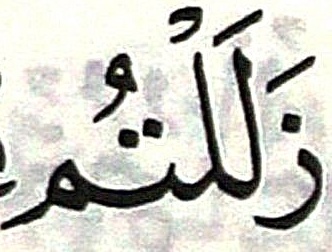 زَلَلْتُم